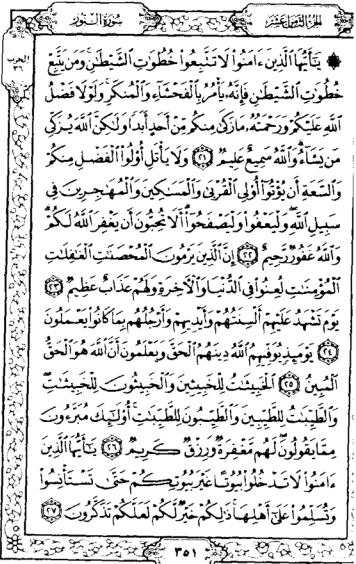 الجزء الثامن عشر
سورة النور
الحزب
٣٦
۞ يَٰٓأَيُّهَا ٱلَّذِينَ ءَامَنُوا۟ لَا تَتَّبِعُوا۟ خُطُوَٰتِ ٱلشَّيْطَٰنِ وَمَن يَتَّبِعْ
خُطُوَٰتِ ٱلشَّيْطَٰنِ فَإِنَّهُۥ يَأْمُرُ بِٱلْفَحْشَآءِ وَٱلْمُنكَرِ وَلَوْلَا فَضْلُ
ٱللَّهِ عَلَيْكُمْ وَرَحْمَتُهُۥ مَا زَكَىٰ مِنكُم مِّنْ أَحَدٍ أَبَدًا وَلَٰكِنَّ ٱللَّهَ يُزَكِّى
مَن يَشَآءُ وَٱللَّهُ سَمِيعٌ عَلِيمٌ ٢١ وَلَا يَأْتَلِ أُو۟لُوا۟ ٱلْفَضْلِ مِنكُمْ
وَٱلسَّعَةِ أَن يُؤْتُوٓا۟ أُو۟لِى ٱلْقُرْبَىٰ وَٱلْمَسَٰكِينَ وَٱلْمُهَٰجِرِينَ فِى
سَبِيلِ ٱللَّهِ وَلْيَعْفُوا۟ وَلْيَصْفَحُوٓا۟ أَلَا تُحِبُّونَ أَن يَغْفِرَ ٱللَّهُ لَكُمْ
وَٱللَّهُ غَفُورٌ رَّحِيمٌ ٢٢ إِنَّ ٱلَّذِينَ يَرْمُونَ ٱلْمُحْصَنَٰتِ ٱلْغَٰفِلَٰتِ
ٱلْمُؤْمِنَٰتِ لُعِنُوا۟ فِى ٱلدُّنْيَا وَٱلْءَاخِرَةِ وَلَهُمْ عَذَابٌ عَظِيمٌ ٢٣
يَوْمَ تَشْهَدُ عَلَيْهِمْ أَلْسِنَتُهُمْ وَأَيْدِيهِمْ وَأَرْجُلُهُم بِمَا كَانُوا۟ يَعْمَلُونَ
٢٤ يَوْمَئِذٍ يُوَفِّيهِمُ ٱللَّهُ دِينَهُمُ ٱلْحَقَّ وَيَعْلَمُونَ أَنَّ ٱللَّهَ هُوَ ٱلْحَقُّ
ٱلْمُبِينُ ٢٥ ٱلْخَبِيثَٰتُ لِلْخَبِيثِينَ وَٱلْخَبِيثُونَ لِلْخَبِيثَٰتِ
وَٱلطَّيِّبَٰتُ لِلطَّيِّبِينَ وَٱلطَّيِّبُونَ لِلطَّيِّبَٰتِ أُو۟لَٰٓئِكَ مُبَرَّءُونَ
مِمَّا يَقُولُونَ لَهُم مَّغْفِرَةٌ وَرِزْقٌ كَرِيمٌ ٢٦ يَٰٓأَيُّهَا ٱلَّذِينَ
ءَامَنُوا۟ لَا تَدْخُلُوا۟ بُيُوتًا غَيْرَ بُيُوتِكُمْ حَتَّىٰ تَسْتَأْنِسُوا۟
وَتُسَلِّمُوا۟ عَلَىٰٓ أَهْلِهَا ذَٰلِكُمْ خَيْرٌ لَّكُمْ لَعَلَّكُمْ تَذَكَّرُونَ ٢٧
٣٥١